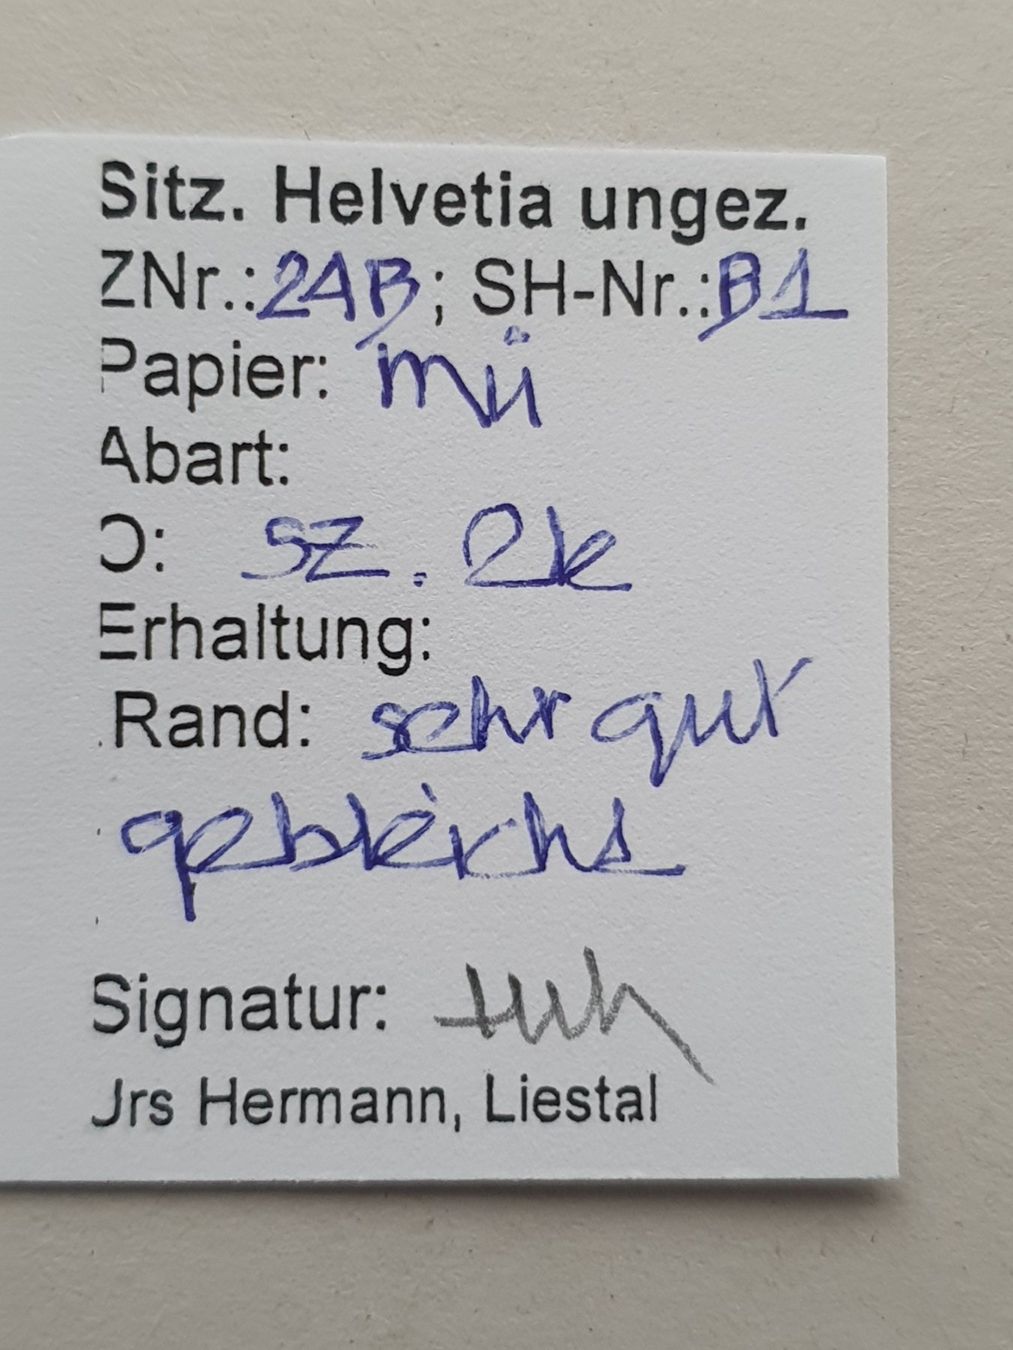 Sitz. Helvetia ungez.
ZNr.: 24B; SH-Nr.: B1
Papier: Mü
Abart:
O: SZ. 2k
Erhaltung:
Rand: sehr gut
Signatur:
Urs Hermann, Liestal